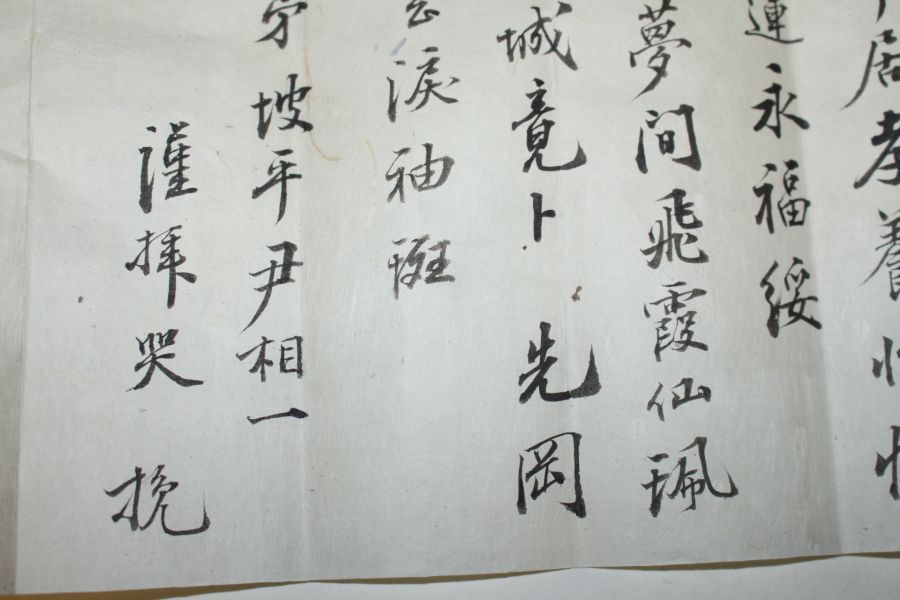 居孝養
連永福綏
夢間飛霞仙珮
城竟卜先岡
淚袖斑
坡平尹相一
謹拜哭 挽